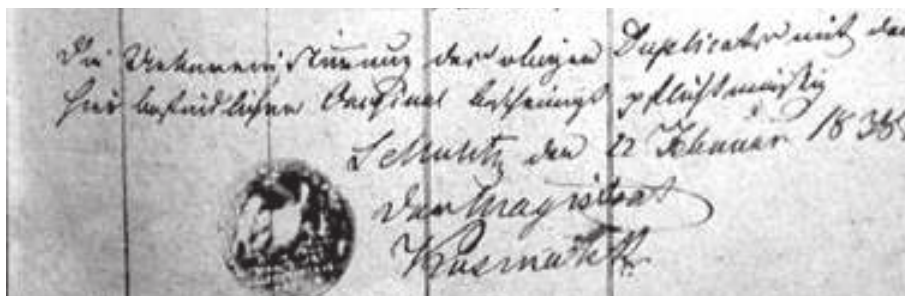 Die Uebereinstimmung des obigen Duplicats mit dem
hier befindlichen Original bescheinigt pflichtmäßig
Schulitz den 22 Februar 1838
Der Magistrat